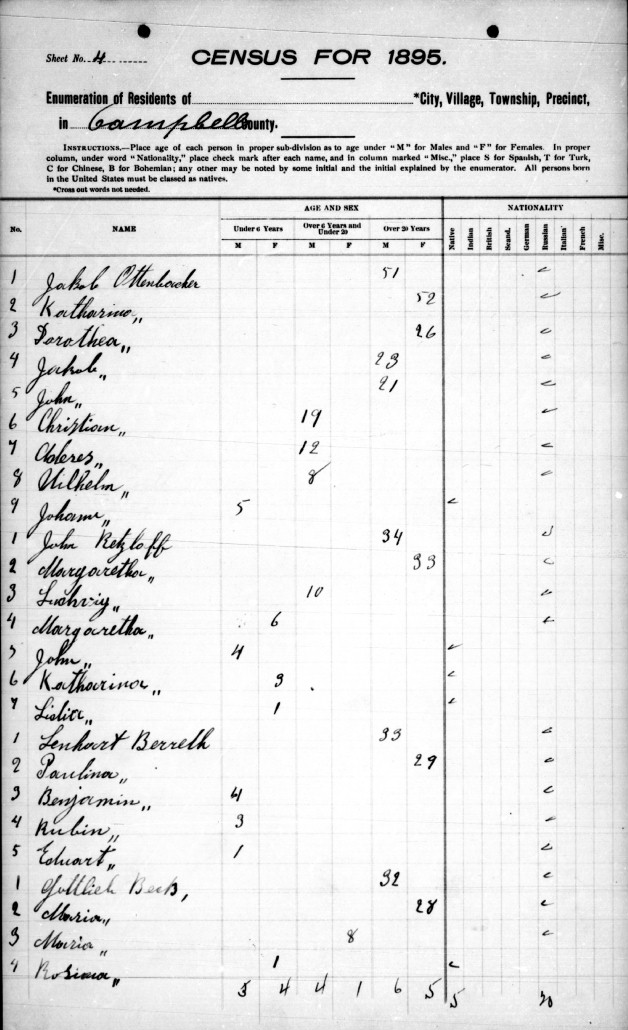 Sheet No. 4
CENSUS FOR 1895.
Enumeration of Residents of *City, Village, Township, Precinct,
in Campbell County.
INSTRUCTIONS.—Place age of each person in proper sub-division as to age under "M" for Males and "F" for Females. In proper
column, under word "Nationality," place check mark after each name, and in column marked "Misc.," place S for Spanish, T for Turk,
C for Chinese, B for Bohemian; any other may be noted by some initial and the initial explained by the enumerator. All persons born
in the United States must be classed as natives.
*Cross out words not needed.
AGE AND SEX NATIONALITY
No. NAME Under 6 Years Over 6 Years and Under 20 Over 20 Years Native Indian British Scand. German Russian Italian French Misc.
M F M F M F
1 Jakob Ottenbacher 51
2 Katharina " 52
3 Dorothea " 26
4 Jakob " 23
5 John " 21
6 Christian " 19
7 " 12
8 Wilhelm " 8
9 Johann " 5
1 John Retzloff 34
2 Margaretha " 33
3 Ludwig " 10
4 Margaretha " 6
5 John " 4
6 Katharina " 3
7 " 1
1 Lenhart Berreth 33
2 Paulina " 29
3 Benjamin " 4
4 Rubin " 3
5 Eduart " 1
1 Gottlieb Beck, 32
2 Maria " 28
3 Maria " 8
4 Rosina " 1
5 4 4 1 6 5 5 20